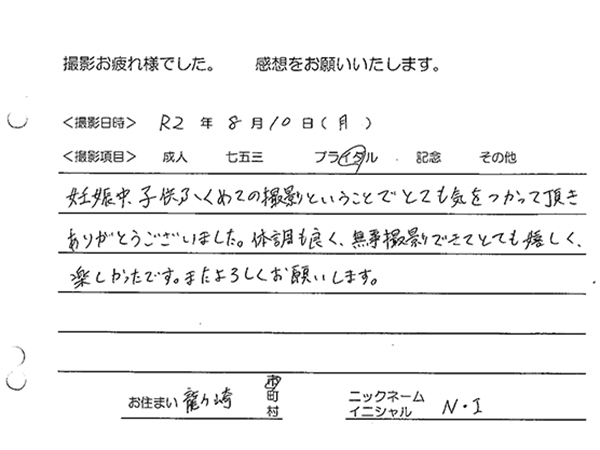 撮影お疲れ様でした。 感想をお願いいたします。
<撮影日時> R2 年 8 月 10 日 ( 月 )
<撮影項目> 成人 七五三 ブライダル 記念 その他
妊娠中、子供ふくめての撮影ということでとても気をつかって頂き
ありがとうございました。体調も良く、無事撮影できてとても嬉しく、
楽しかったです。またよろしくお願いします。
お住まい 龍ケ崎 市町村 ニックネーム イニシャル N・I